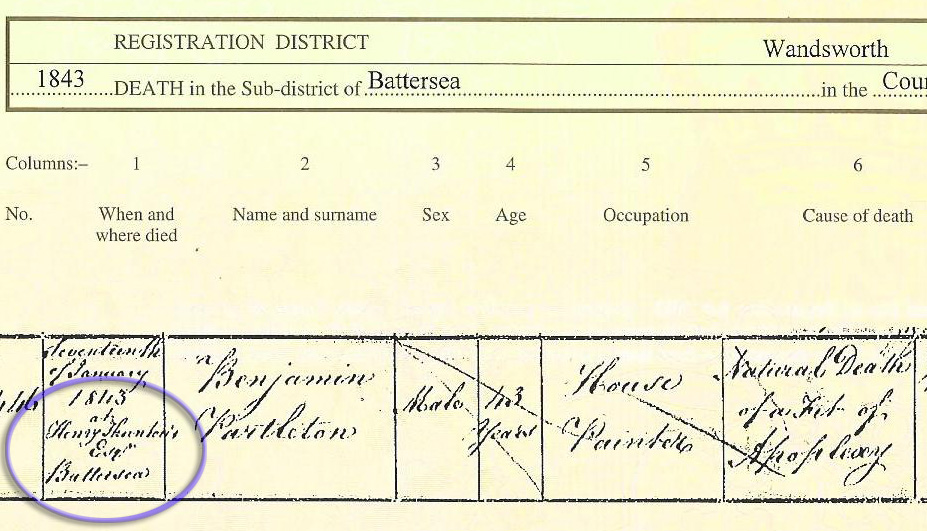 REGISTRATION DISTRICT Wandsworth
1843 DEATH in the Sub-district of Battersea in the Cou
Columns:- 1 2 3 4 5 6
No. When and where died Name and surname Sex Age Occupation Cause of death
Seventeenth
of January
1843
at
Henry
Esqr
Battersea
Benjamin
Partleton
Male
43
Years
House
Painter
Natural Death
of a Fit of
Apoplexy